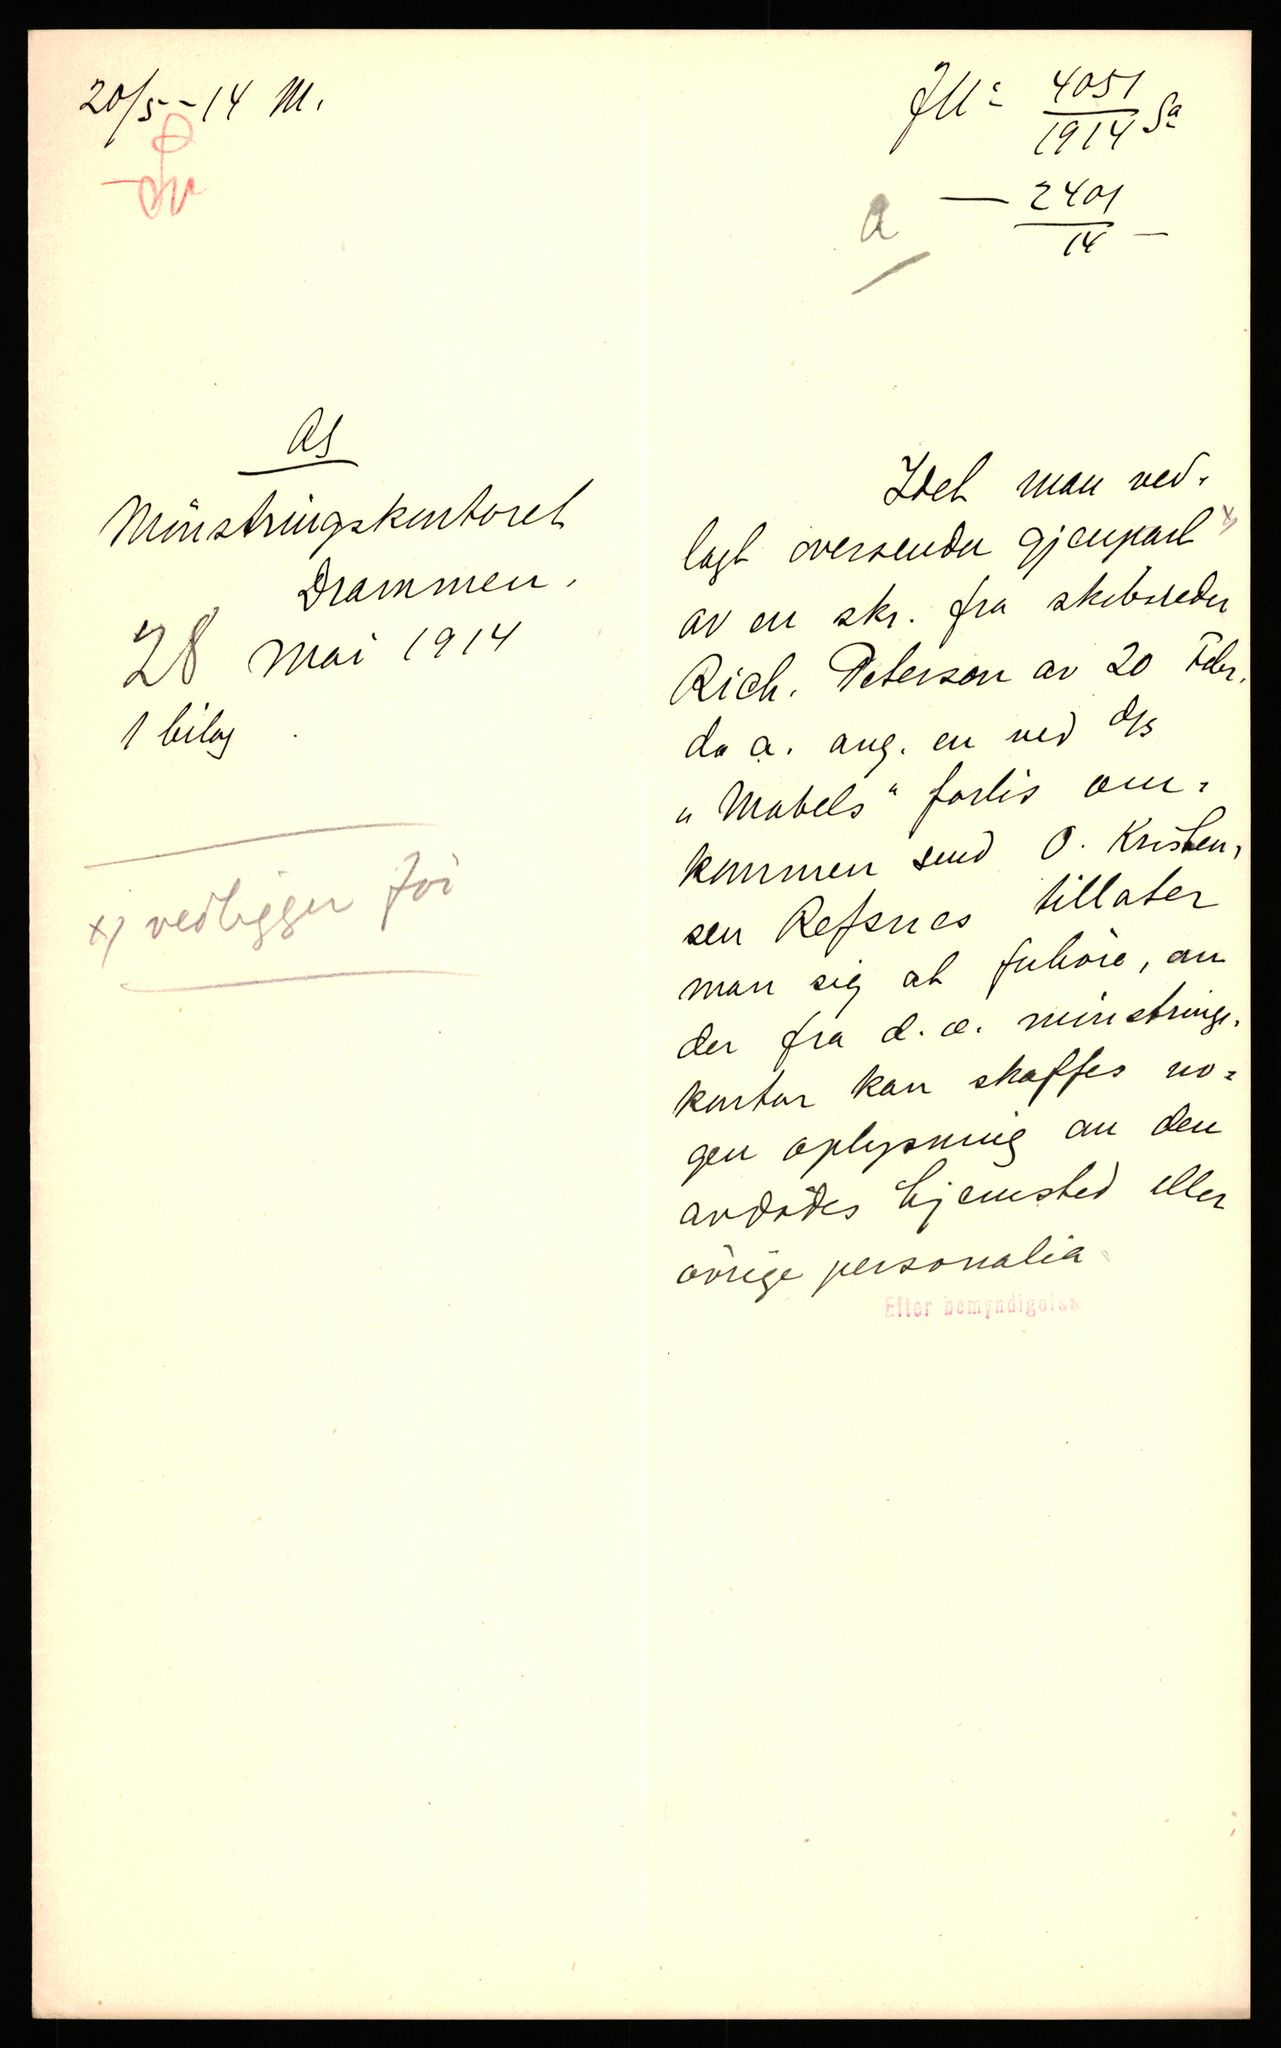 20/5-14 M.
JN: 4051
1914 Sa
— 2401
14 —
a
As
Mönstringskontoret
Drammen.
28 mai 1914
1 bilag
x) vedligger för
Idet man ved-
lagt oversender gjenpart x)
av en skr. fra skibsreder
Rich. Peterson av 20 Febr.
d. a. ang. en ved d/s
"Mabels" forlis om-
kommen smd O. Kristen-
sen Refsnes tillater
man sig at forhöre, om
der fra d. æ. mönstrings-
kontor kan skaffes no-
gen oplysning om den
avdödes hjemsted eller
övrige personalia
Efter bemyndigelse